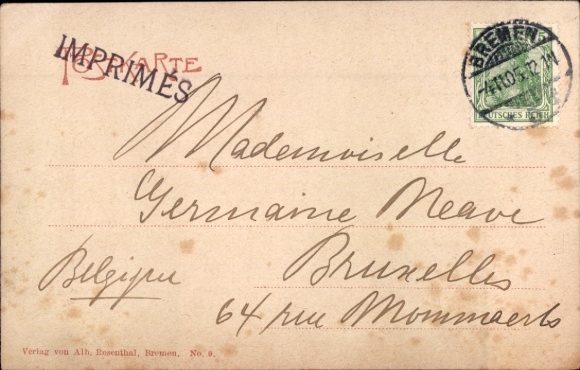 POSTKARTE
IMPRIMÉS
BREMEN
DEUTSCHES REICH
Mademoiselle
Germaine Neave
Bruxelles
Belgique
64 rue Mommaerts
Verlag von Alb. Rosenthal, Bremen. No. 9.